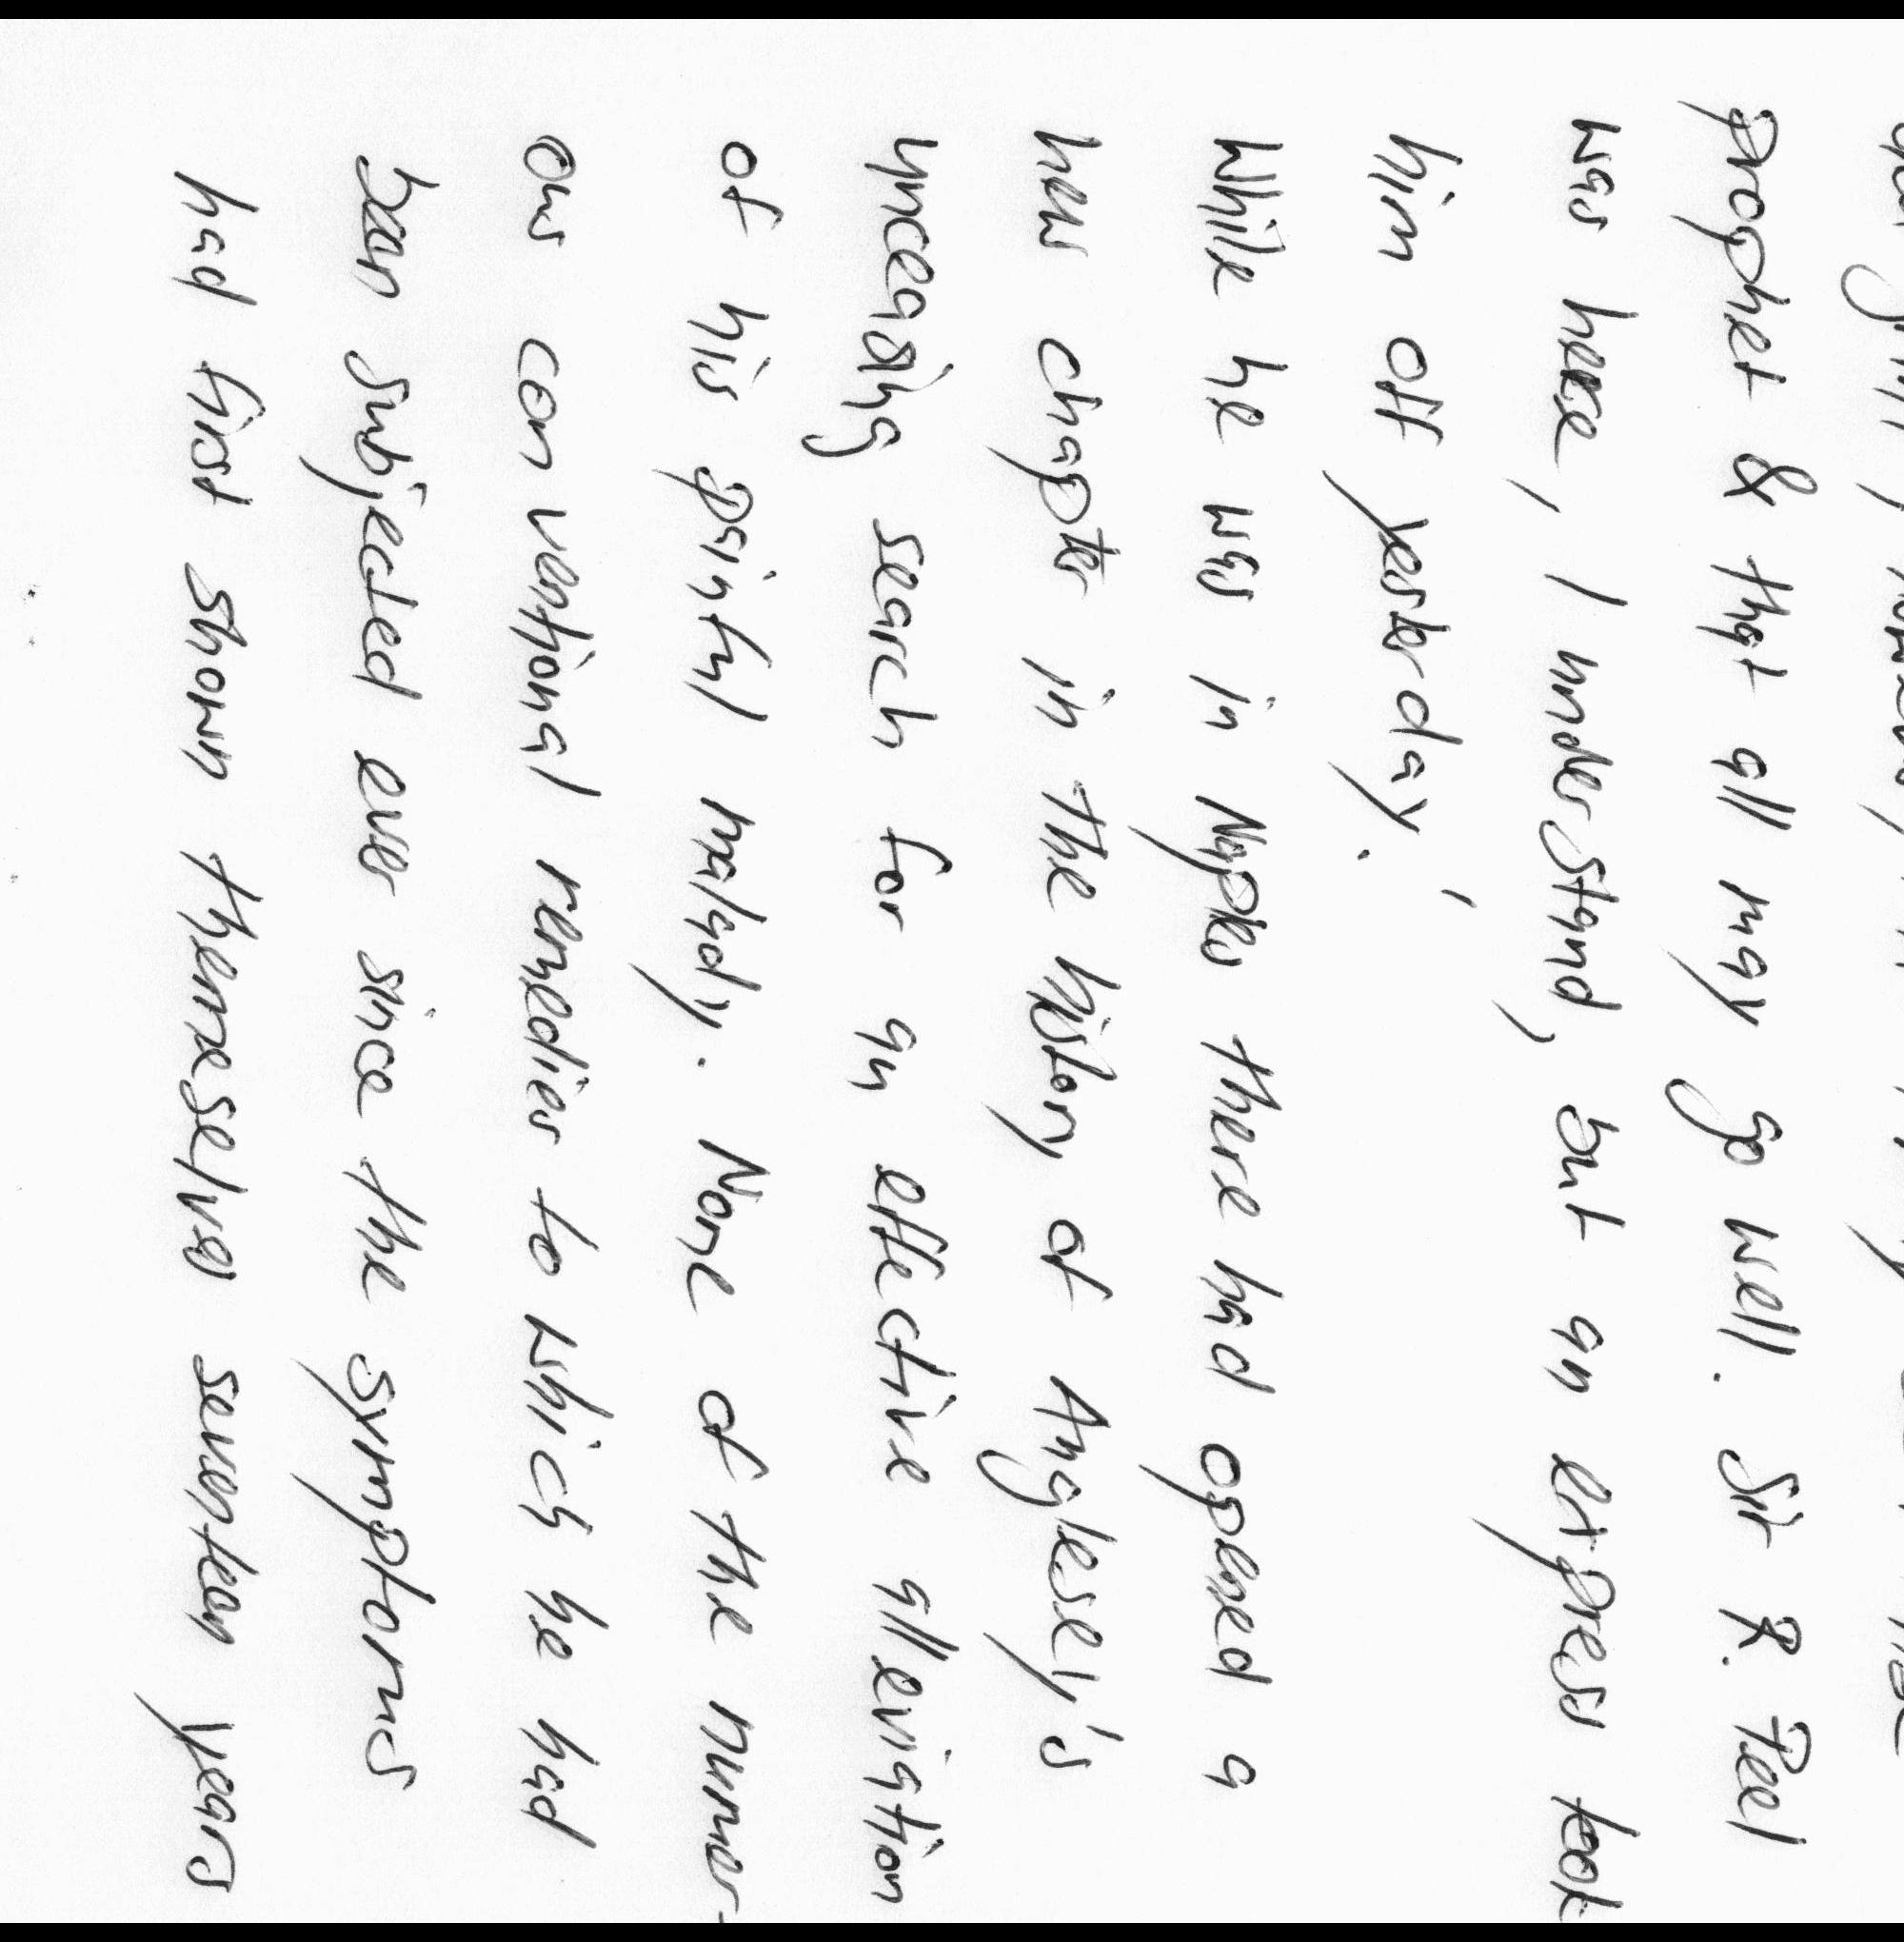 prophet & that all may go well. Sir R. Peel
was here, I understand, but an express took
him off yesterday.'
While he was in Naples there had opened a
new chapter in the history of Anglesey's
unceasing search for an effective alleviation
of his painful malady. None of the numer-
ous conventional remedies to which he had
been subjected ever since the symptoms
had first shown themselves seventeen years